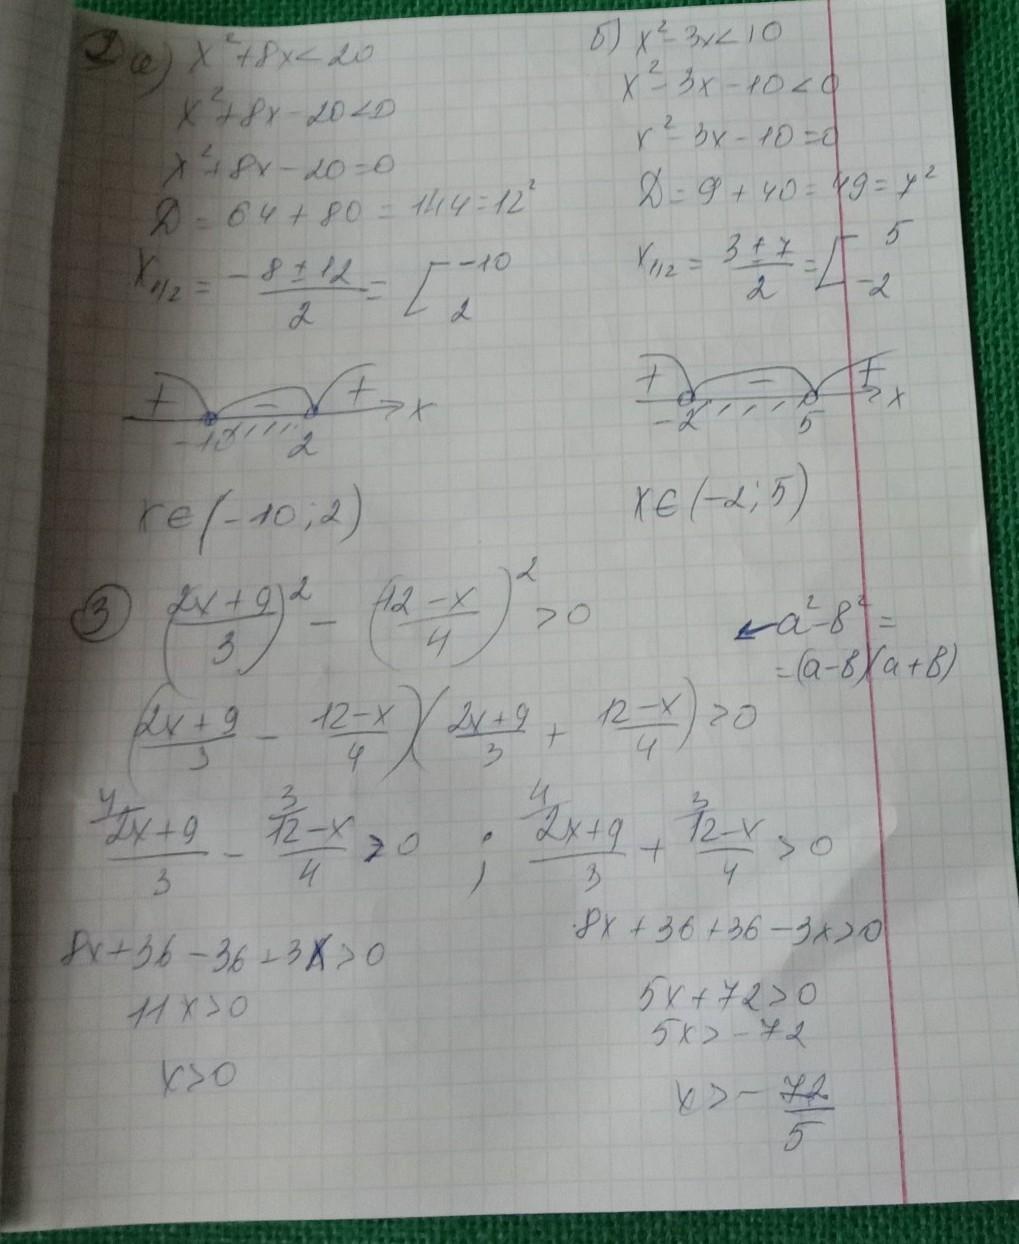 2) а) x²+8x<20
x²+8x-20<0
x²+8x-20=0
D=64+80=144=12²
x₁/₂ = (-8±12)/2 = [-10
2
+ - + x
-10 2
x∈(-10;2)
б) x²-3x<10
x²-3x-10<0
x²-3x-10=0
D=9+40=49=7²
x₁/₂ = (3±7)/2 = [5
-2
+ - + x
-2 5
x∈(-2;5)
3 ((2x+9)/3)² - ((12-x)/4)² >0
a²-b²=
=(a-b)(a+b)
((2x+9)/3 - (12-x)/4)((2x+9)/3 + (12-x)/4)>0
4/ (2x+9)/3 - 3/ (12-x)/4 >0 ; 4/ (2x+9)/3 + 3/ (12-x)/4 >0
8x+36-36+3x>0
11x>0
x>0
8x+36+36-3x>0
5x+72>0
5x>-72
x>-72/5